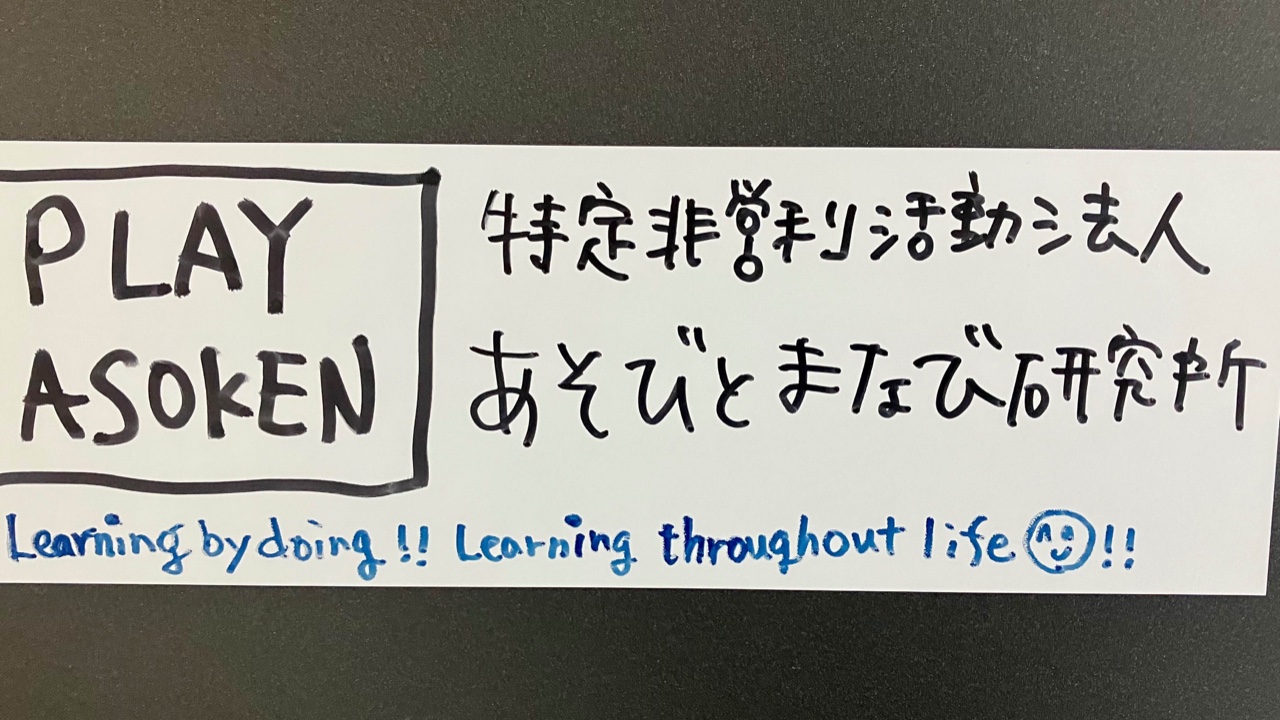 PLAY
ASOKEN
特定非営利活動法人
あそびとまなび研究所
Learning by doing!! Learning throughout life!!